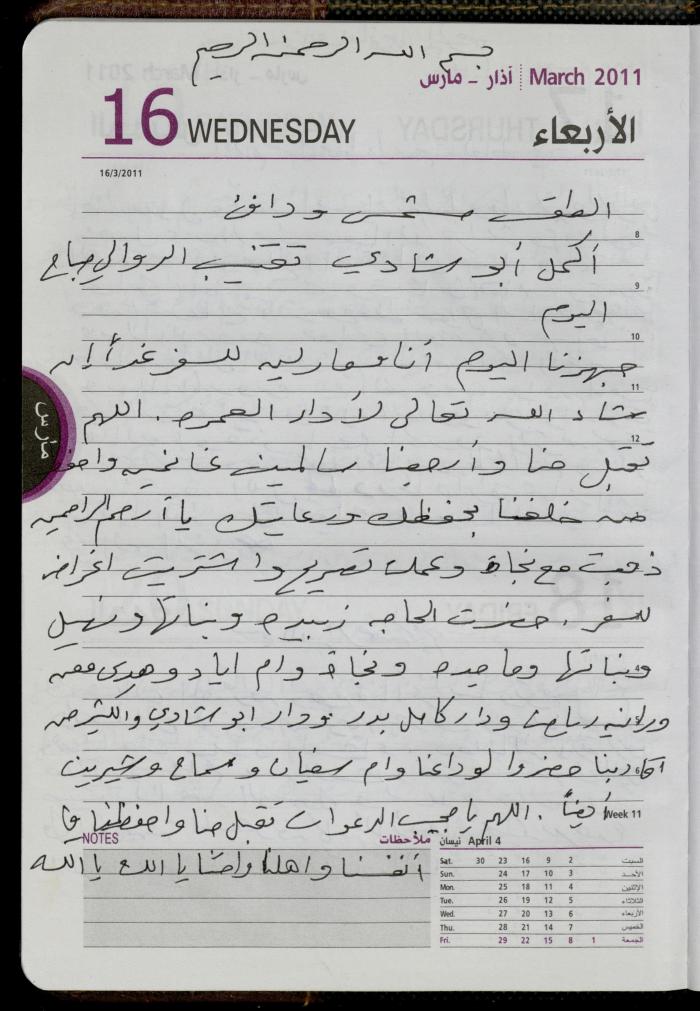 بسم الله الرحمن الرحيم
آذار - مارس March 2011
16 WEDNESDAY الأربعاء
16/3/2011
الطقس مشمس ودافئ
8
أكمل أبو شادي تقنيب الدوالي صباح
9
اليوم
10
جهزنا اليوم أنا للسفر غداً إن
11
شاء الله تعالى لأداء العمره . اللهم
12
تقبل منا وأرجعنا سالمين غانمين
من خلفنا بحفظك ورعايتك يا أرحم الراحمين
ذهبت مع نجاة وعملت تصريح واشتريت اغراض
للسفر . حضرت الحاجه زبيده وبناتها ونهيل
وبناتها وماجده ونجاة وام اياد وهدى
ورانيه ودار كامل بدر ودار ابو شادي والكثير من
حضروا لوداعنا وام سفيان وسماح وشيرين
أيضاً . اللهم يا مجيب الدعوات تقبل منا واحفظنا
أنفسنا وأهلنا يا الله يا الله
مارس
Week 11
NOTES ملاحظات
April 4 نيسان
Sat. 30 23 16 9 2 السبت
Sun. 24 17 10 3 الأحد
Mon. 25 18 11 4 الإثنين
Tue. 26 19 12 5 الثلاثاء
Wed. 27 20 13 6 الأربعاء
Thu. 28 21 14 7 الخميس
Fri. 29 22 15 8 1 الجمعة